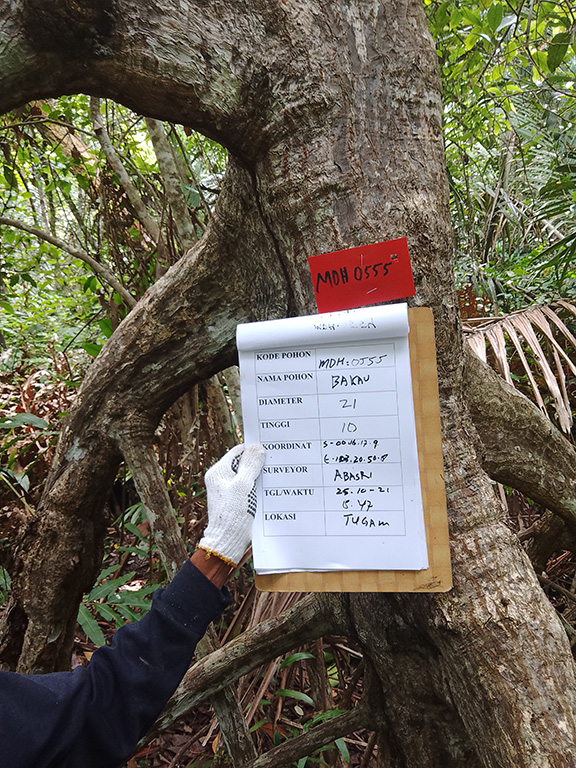 MDH 0555
KODE POHON MDH:0555
NAMA POHON BAKAU
DIAMETER 21
TINGGI 10
KOORDINAT S-00.16.17.9
E-103.20.50.8
SURVEYOR ABASRI
TGL/WAKTU 25-10-21
15.47
LOKASI TUGAM